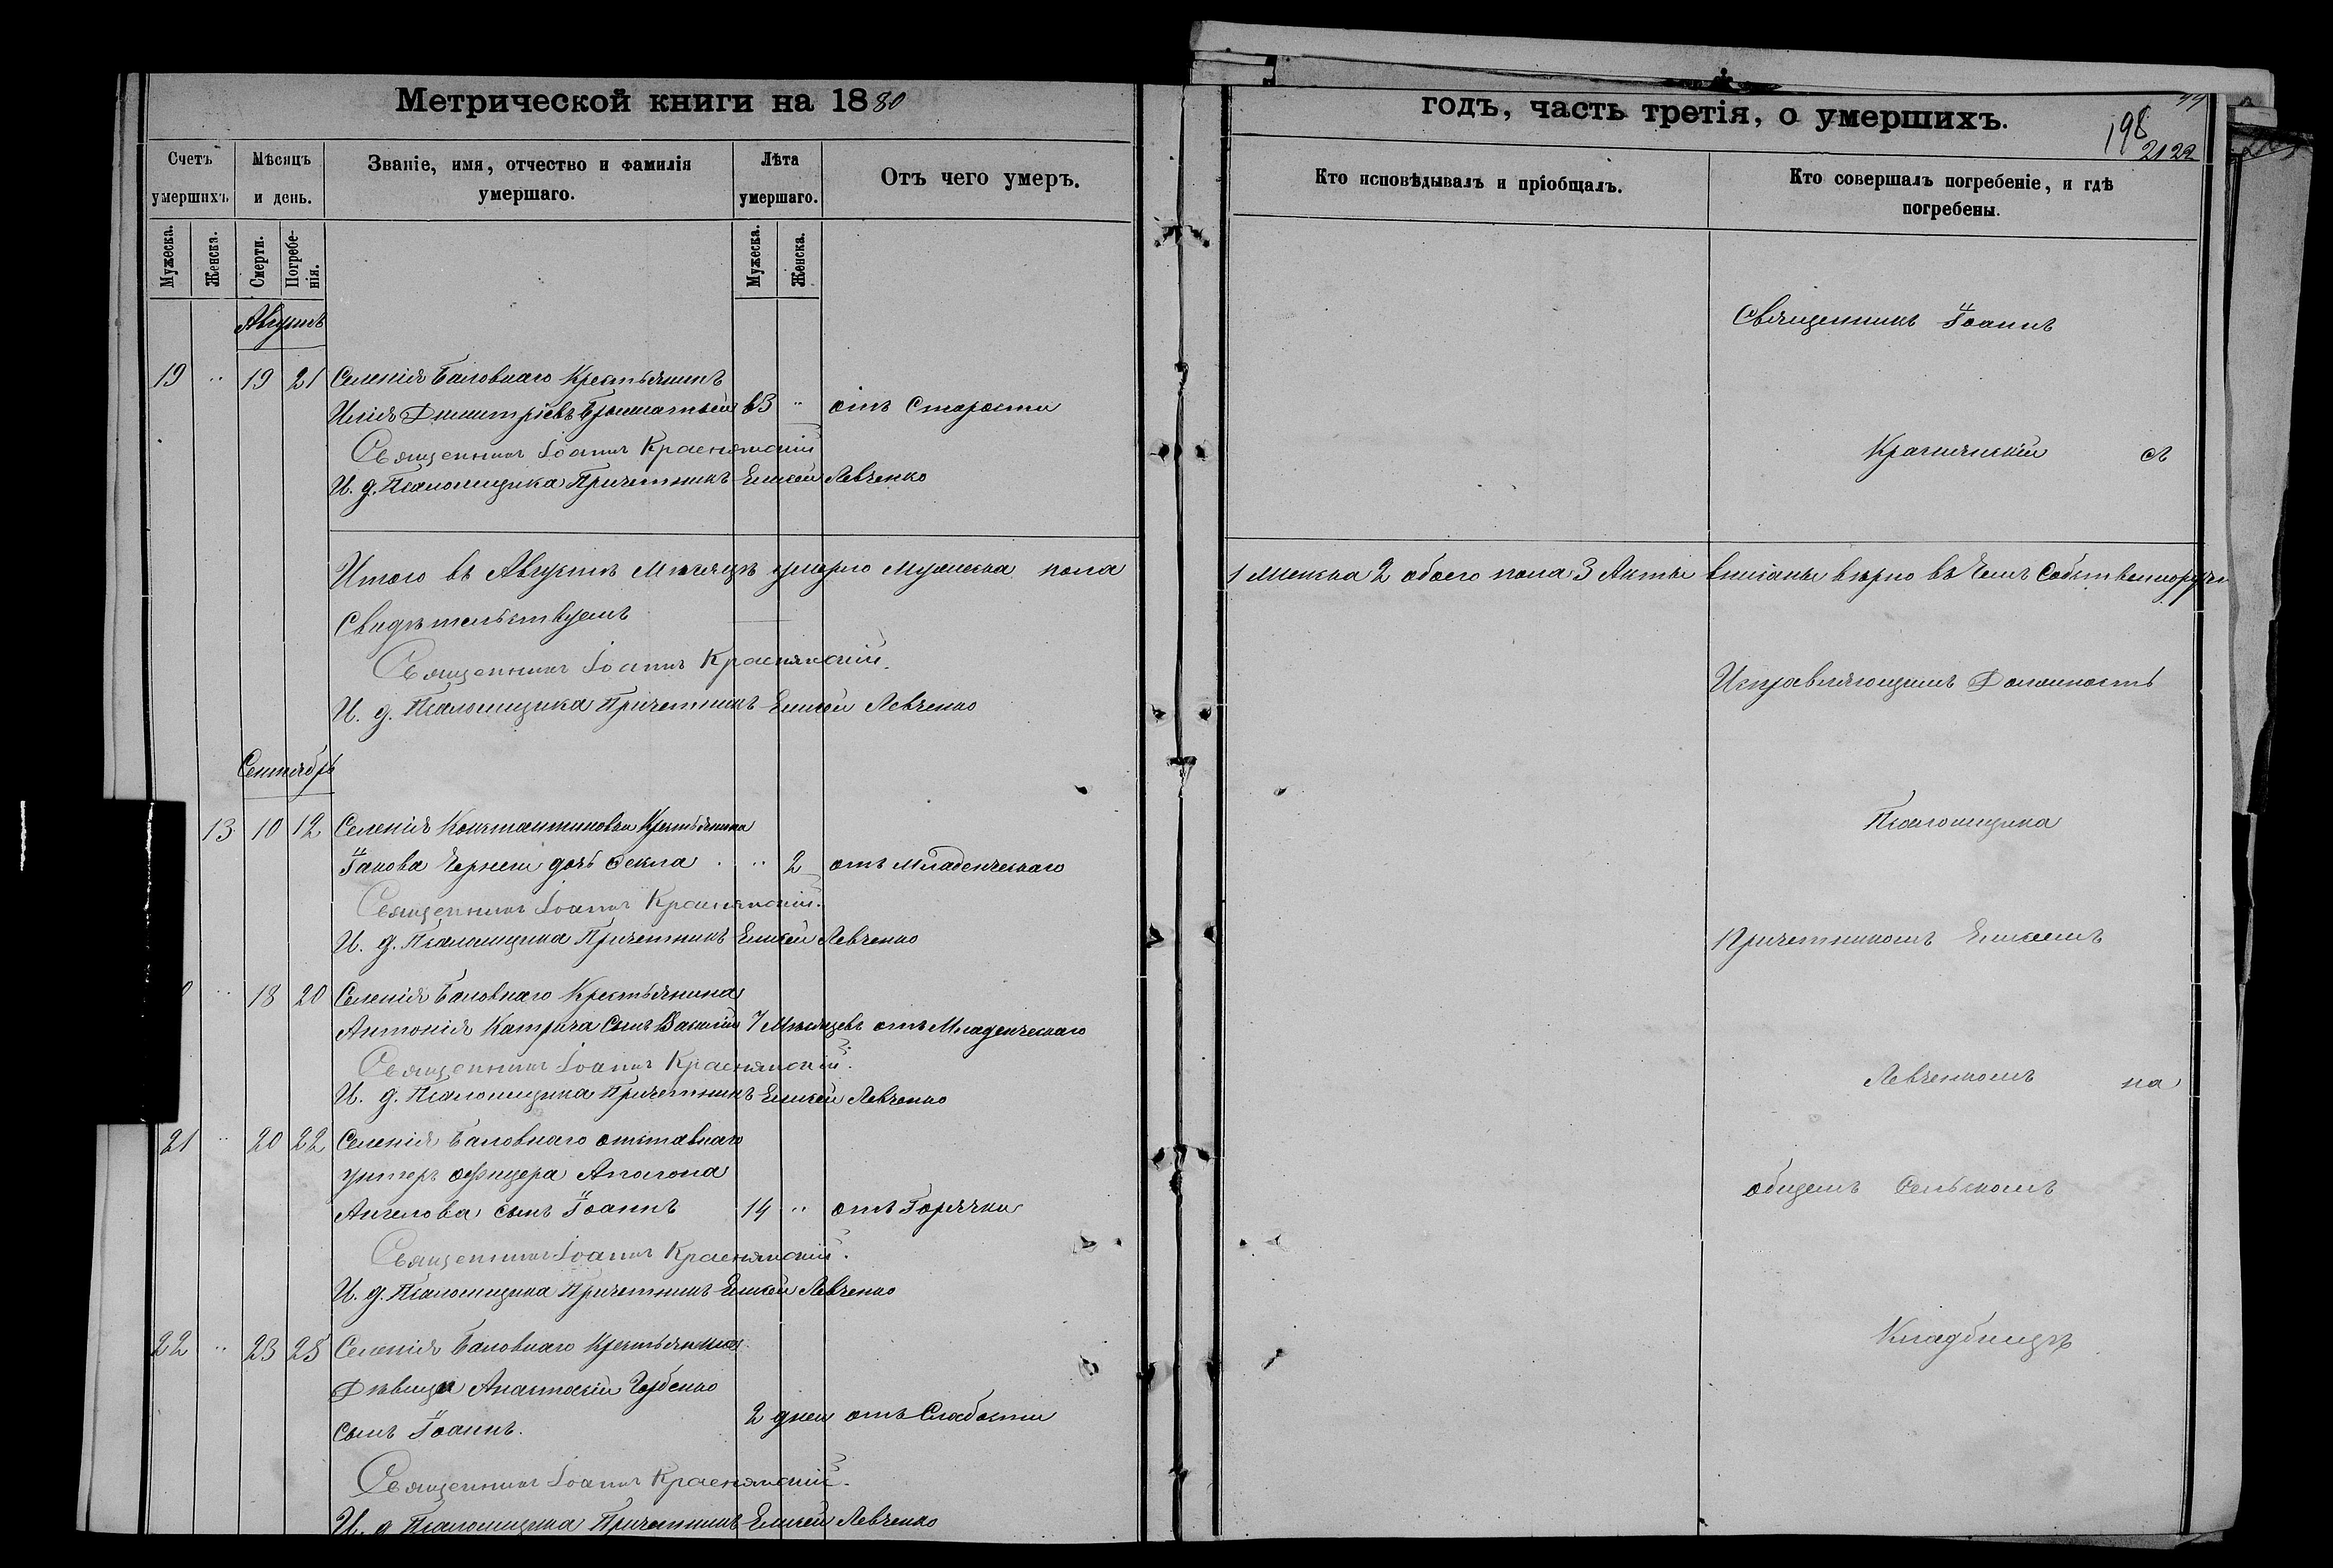 Метрической книги на 1880
годъ, часть третія, о умершихъ.
198
2122
Счетъ умершихъ
Мѣсяцъ и день.
Званіе, имя, отчество и фамилія умершаго.
Лѣта умершаго.
Отъ чего умеръ.
Кто исповѣдывалъ и пріобщалъ.
Кто совершалъ погребеніе, и гдѣ погребены.
Мужеска.
Женска.
Смерти.
Погребенія.
Мужеска.
Женска.
Августъ
19 " 19 21 Селенія Баловнаго Крестьянинъ
Илія Димитріевъ 63 " отъ Старости
Священникъ Іоаннъ Краснянскій
И. д. Псаломщика Причетникъ Елисей Левченко
Итого въ Августѣ Мѣсяцѣ умерло Мужеска пола
1 Женска 2 обоего пола 3 Акты вписаны вѣрно въ чемъ Собственноручно
Свидѣтельствуемъ
Священникъ Іоаннъ Краснянскій.
И. д. Псаломщика Причетникъ Елисей Левченко
Сентябрь
13 10 12 Селенія Константиновки Крестьянина
Іакова Чернеги дочь Фекла " 2 отъ младенческаго
Священникъ Іоаннъ Краснянскій.
И. д. Псаломщика Причетникъ Елисей Левченко
" 18 20 Селенія Баловнаго Крестьянина
Антонія Катрича Сынъ Василій 7 Мѣсяцевъ отъ Младенческаго
Священникъ Іоаннъ Краснянскій.
И. д. Псаломщика Причетникъ Елисей Левченко
21 " 20 22 Селенія Баловнаго отставнаго
унтеръ офицера Аполона
Ангелова сынъ Іоаннъ 14 " отъ Горячки
Священникъ Іоаннъ Краснянскій.
И. д. Псаломщика Причетникъ Елисей Левченко
22 " 23 25 Селенія Баловнаго Крестьянки
Дѣвицы Анастасіи сынъ Іоаннъ. 2 дней отъ Слабости
Священникъ Іоаннъ Краснянскій.
И. д. Псаломщика Причетникъ Елисей Левченко
Священникъ Іоаннъ
Краснянскій съ
Исправляющимъ Должность
Псаломщика
Причетникомъ Елисеемъ
Левченкомъ на
общемъ Сельскомъ
Кладбищѣ